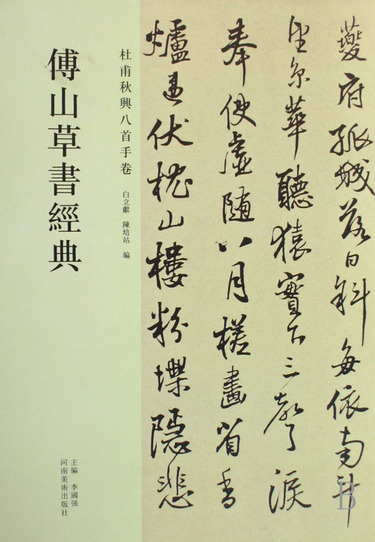 夔府孤城落日斜每依南斗
望京華聽猿實下三聲淚
奉使虛隨八月槎畫省香
爐違伏枕山樓粉堞隱悲
杜甫秋興八首手卷
白立獻 陳培站 編
傅山草書經典
主編 李國强
河南美術出版社
B